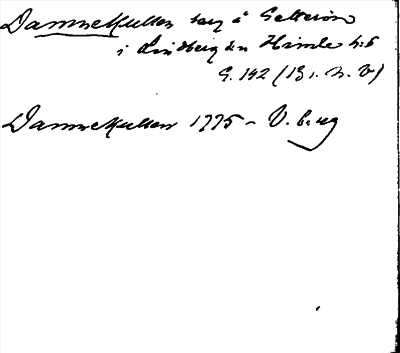 Damnekullen berg å Getterön
i Lindberg sn Himle hd
S. 142 (B 1. N. V)
Damnekullen 1775 – V. b. ug